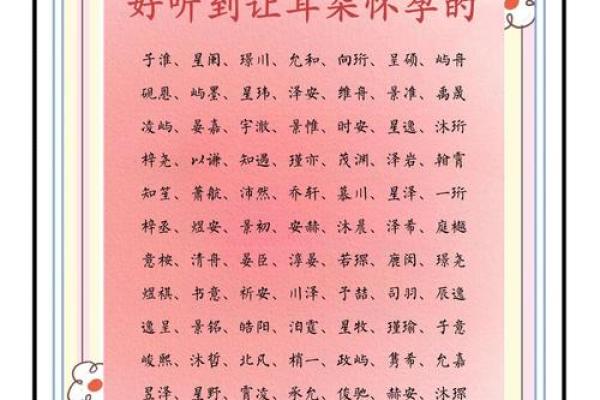 好听到让耳朵怀孕的
子淮、星阑、璟川、允和、向珩、呈硕、屿舟
砚恩、屿墨、星玮、泽安、维舟、景准、禹晟
凌屿、晏嘉、宇澈、景惟、时安、星逸、沐珩
梓尧、以谦、知遇、瑾亦、茂渊、泽岩、翰霄
知笙、萧航、沛然、乔轩、慕川、星泽、一珩
梓丞、煜安、景初、安赫、沐晨、泽希、庭樾
意桉、清舟、晏臣、淳晏、若琛、鹿闵、璟尧
煜祺、书意、祈安、川泽、予喆、司羽、辰逸
逸呈、景铭、皓阳、洎霆、星牧、瑾瑜、子意
峻熙、沐哲、北风、梢一、政屿、隽希、允嘉
昱泽、星野、霄凌、承允、俊驰、赫安、沐琛